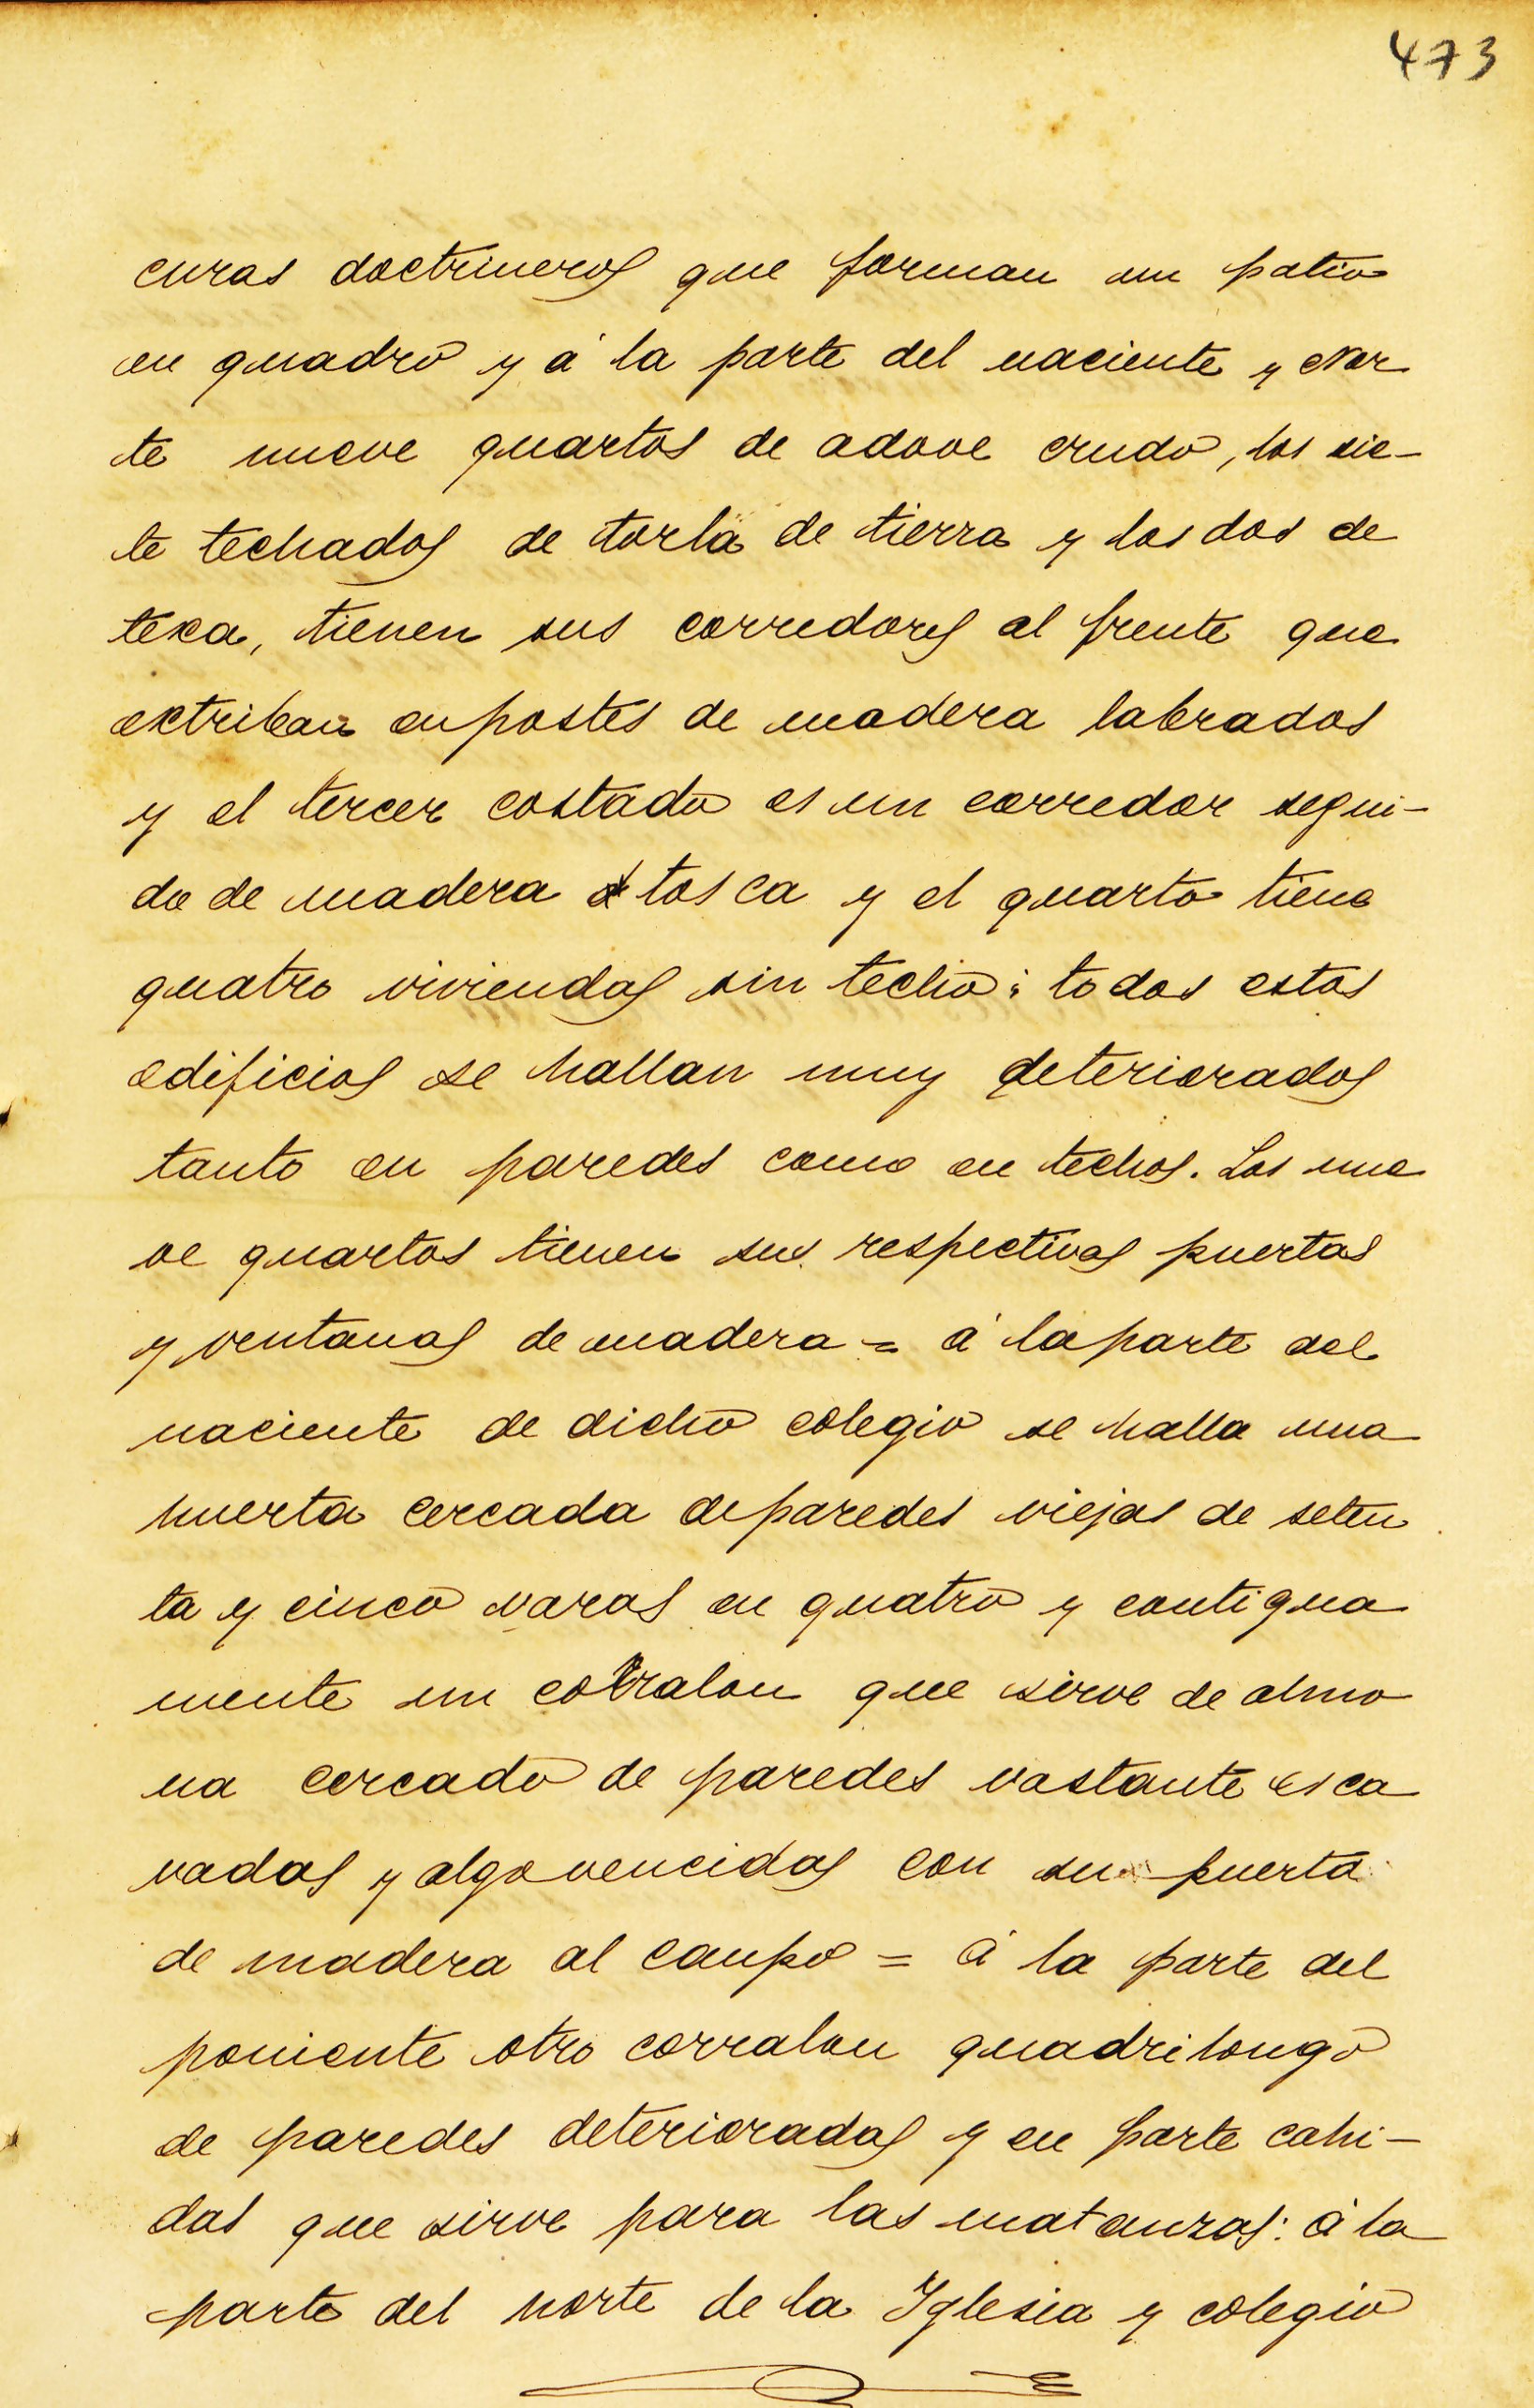 473
curas doctrineros que forman un patio
en quadro y á la parte del naciente y Nor
te nueve quartos de adove crudo, los sie-
te techados de torta de tierra y los dos de
texa, tienen sus corredores al frente que
extriban en postes de madera labrados
y el tercer costado es un corredor segui-
do de madera tosca y el quarto tiene
quatro viviendas sin techo: todos estos
edificios se hallan muy deteriorados
tanto en paredes como en techos. Los nue
ve quartos tienen sus respectivas puertas
y ventanas de madera = á la parte del
naciente de dicho colegio se halla una
huerta cercada de paredes viejas de seten
ta y cinco varas en quatro y contigua
mente un corralon que sirve de almo
na cercado de paredes vastante esca
vadas y algo vencidas con su puerta
de madera al campo = á la parte del
poniente otro corralon quadrilongo
de paredes deterioradas y en parte cahi-
das que sirve para las matanzas: á la
parte del norte de la Iglesia y colegio